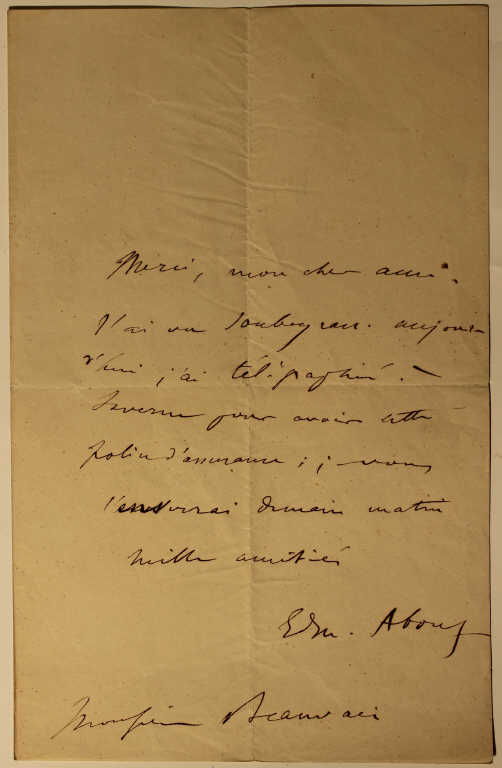 Merci, mon cher ami.
J'ai vu Soubeyran. aujour
d'hui j'ai télégraphié à
Saverne pour avoir cette
police d'assurance ; je vous
l'enverrai demain matin
mille amitiés
Edm. About
Monsieur Beauvais